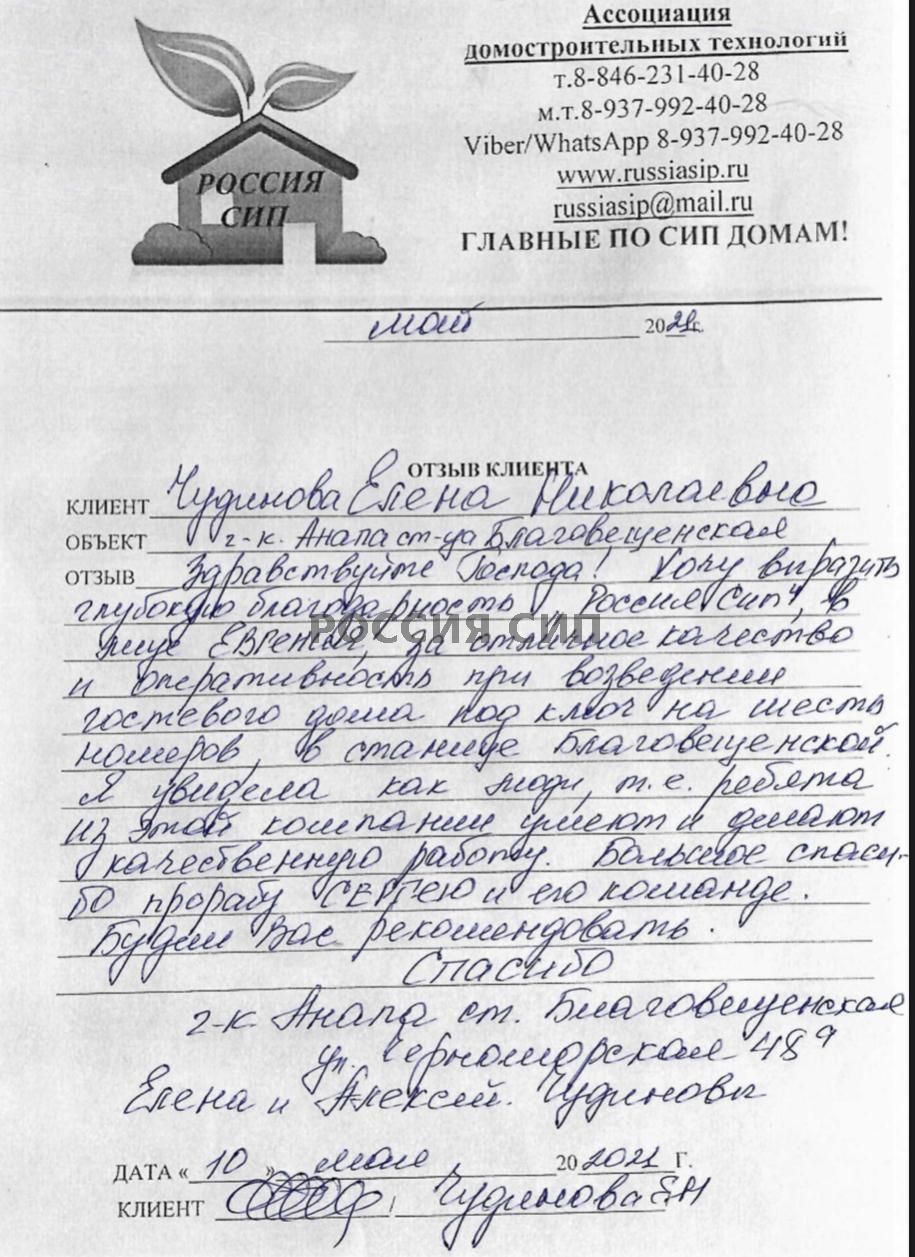 Ассоциация
домостроительных технологий
т.8-846-231-40-28
м.т.8-937-992-40-28
Viber/WhatsApp 8-937-992-40-28
www.russiasip.ru
russiasip@mail.ru
ГЛАВНЫЕ ПО СИП ДОМАМ!
РОССИЯ
СИП
май 2021г.
ОТЗЫВ КЛИЕНТА
КЛИЕНТ Чудинова Елена Николаевна
ОБЪЕКТ г-к. Анапа ст-ца Благовещенская
ОТЗЫВ Здравствуйте Господа! Хочу выразить
глубокую благодарность „Россия Сип", в
лице ЕВГения, за отличное качество
РОССИЯ СИП
и оперативность при возведении
гостевого дома под ключ на шесть
номеров, в станице Благовещенской.
Я увидела как люди, т.е. ребята
из этой компании умеют и делают
качественную работу. Большое спаси-
бо прорабу СЕРГЕЮ и его команде.
Будем Вас рекомендовать.
Спасибо
г-к. Анапа ст. Благовещенская
ул. Черноморская 48а
Елена и Алексей. Чудиновы
ДАТА « 10 » мая 202021 Г.
КЛИЕНТ / Чудинова ЕН